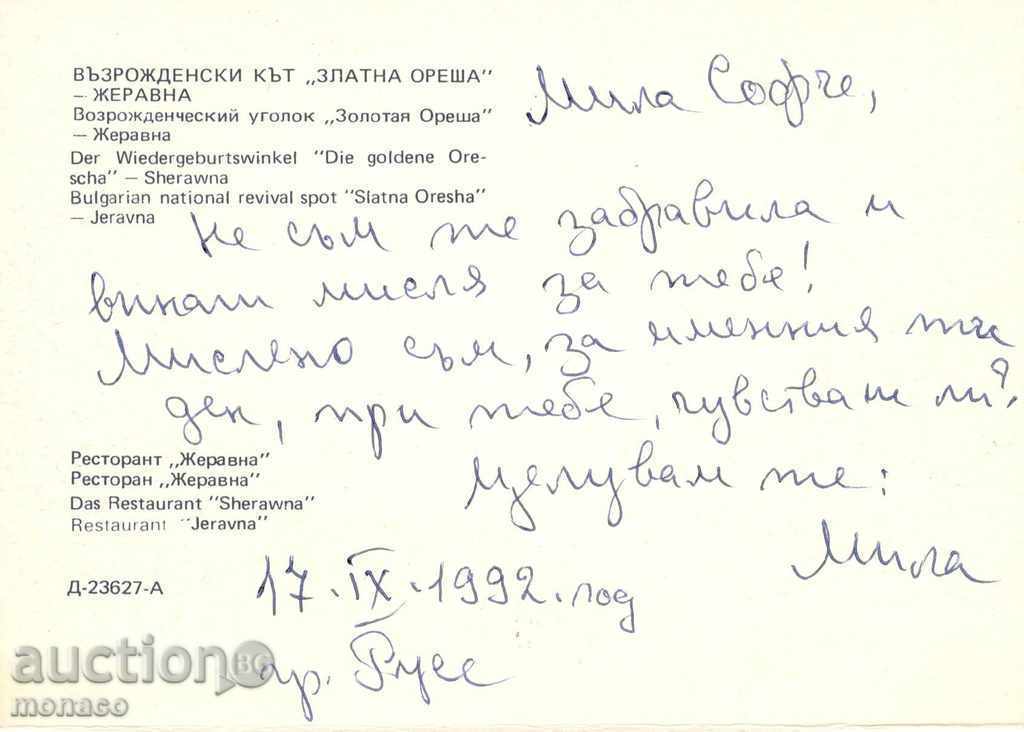 ВЪЗРОЖДЕНСКИ КЪТ „ЗЛАТНА ОРЕША"
— ЖЕРАВНА
Возрожденческий уголок „Золотая Ореша"
— Жеравна
Der Wiedergeburtswinkel "Die goldene Ore-
scha" — Sherawna
Bulgarian national revival spot "Slatna Oresha"
— Jeravna
Мила Софче,
Не съм те забравила и
винаги мисля за тебе!
Мислено съм, за именния ти
ден, при тебе, чувстваш ли?
Целувам те:
Мила
Ресторант „Жеравна"
Ресторан „Жеравна"
Das Restaurant "Sherawna"
Restaurant "Jeravna"
Д-23627-А
17.IX.1992.год
гр. Русе
auction BG
monaco